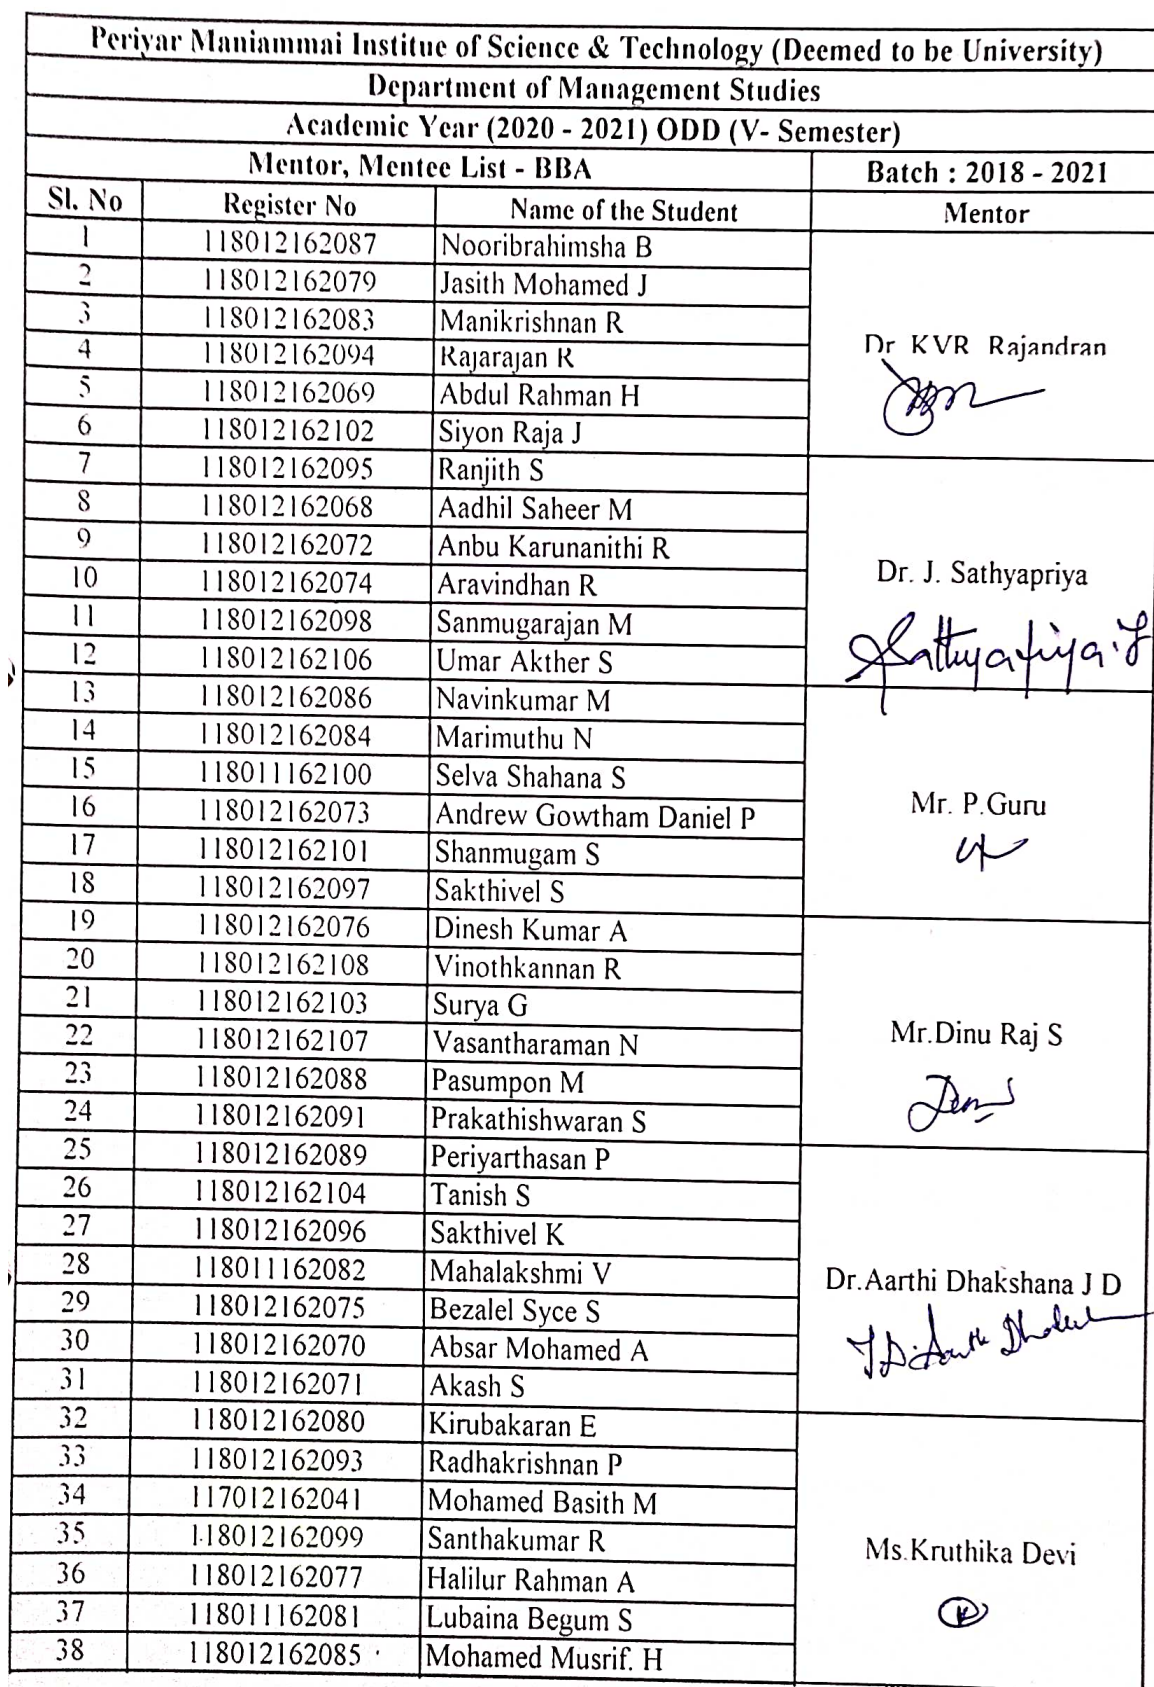 Periyar Maniammai Institue of Science & Technology (Deemed to be University)
Department of Management Studies
Academic Year (2020 - 2021) ODD (V- Semester)
Mentor, Mentee List - BBA Batch : 2018 - 2021
Sl. No Register No Name of the Student Mentor
1 118012162087 Nooribrahimsha B
2 118012162079 Jasith Mohamed J
3 118012162083 Manikrishnan R
4 118012162094 Rajarajan R
Dr KVR Rajandran
5 118012162069 Abdul Rahman H
6 118012162102 Siyon Raja J
7 118012162095 Ranjith S
8 118012162068 Aadhil Saheer M
9 118012162072 Anbu Karunanithi R
10 118012162074 Aravindhan R
Dr. J. Sathyapriya
11 118012162098 Sanmugarajan M
12 118012162106 Umar Akther S
Sathyapriya.J
13 118012162086 Navinkumar M
14 118012162084 Marimuthu N
15 118011162100 Selva Shahana S
16 118012162073 Andrew Gowtham Daniel P
Mr. P.Guru
17 118012162101 Shanmugam S
18 118012162097 Sakthivel S
19 118012162076 Dinesh Kumar A
20 118012162108 Vinothkannan R
21 118012162103 Surya G
22 118012162107 Vasantharaman N
Mr.Dinu Raj S
23 118012162088 Pasumpon M
24 118012162091 Prakathishwaran S
25 118012162089 Periyarthasan P
26 118012162104 Tanish S
27 118012162096 Sakthivel K
28 118011162082 Mahalakshmi V
Dr.Aarthi Dhakshana J D
29 118012162075 Bezalel Syce S
30 118012162070 Absar Mohamed A
31 118012162071 Akash S
32 118012162080 Kirubakaran E
33 118012162093 Radhakrishnan P
34 117012162041 Mohamed Basith M
35 118012162099 Santhakumar R
Ms.Kruthika Devi
36 118012162077 Halilur Rahman A
37 118011162081 Lubaina Begum S
38 118012162085 Mohamed Musrif. H